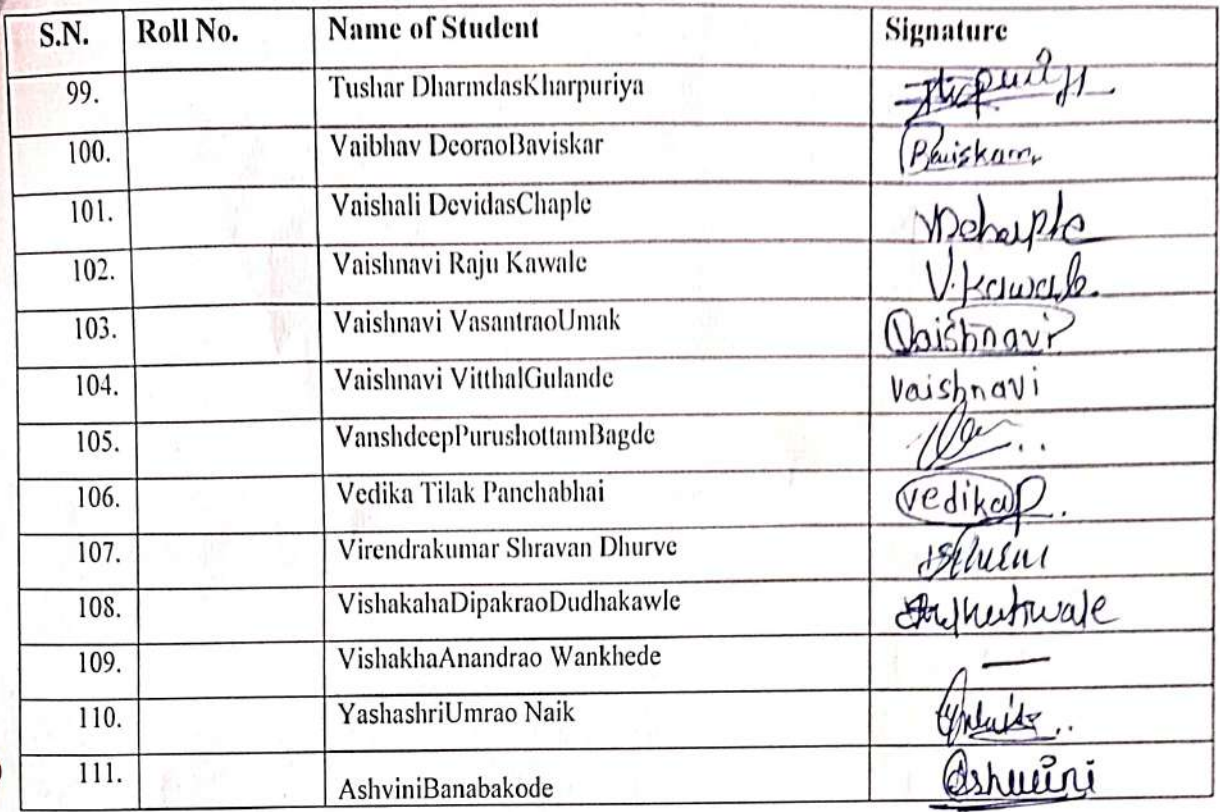 S.N. Roll No. Name of Student Signature
99. Tushar DharmdasKharpuriya
100. Vaibhav DeoraoBaviskar Baviskar
101. Vaishali DevidasChaple VDchaple
102. Vaishnavi Raju Kawale V.Kawale.
103. Vaishnavi VasantraoUmak Vaishnavi
104. Vaishnavi VitthalGulande Vaishnavi
105. VanshdeepPurushottamBagde
106. Vedika Tilak Panchabhai VedikaP.
107. Virendrakumar Shravan Dhurve
108. VishakahaDipakraoDudhakawle
109. VishakhaAnandrao Wankhede —
110. YashashriUmrao Naik
111. AshviniBanabakode Ashwini